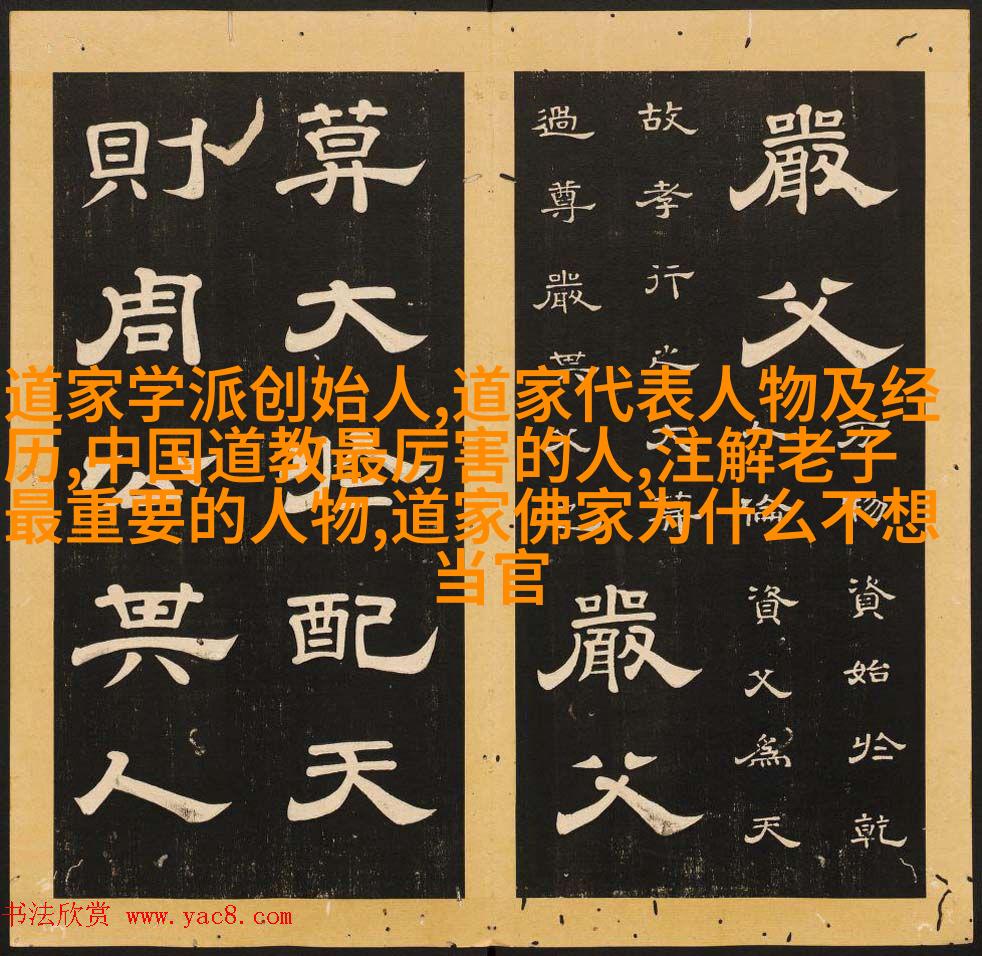 道家学派创始人,道家代表人物及经
历,中国道教最厉害的人,注解老子
最重要的人物,道家佛家为什么不想
当官
嚴父
物資始於乾
人倫資父為天
故孝行之大莫
過尊嚴其父
嚴父
莫大於配天
則周公其人
书法欣赏 www.yac8.com